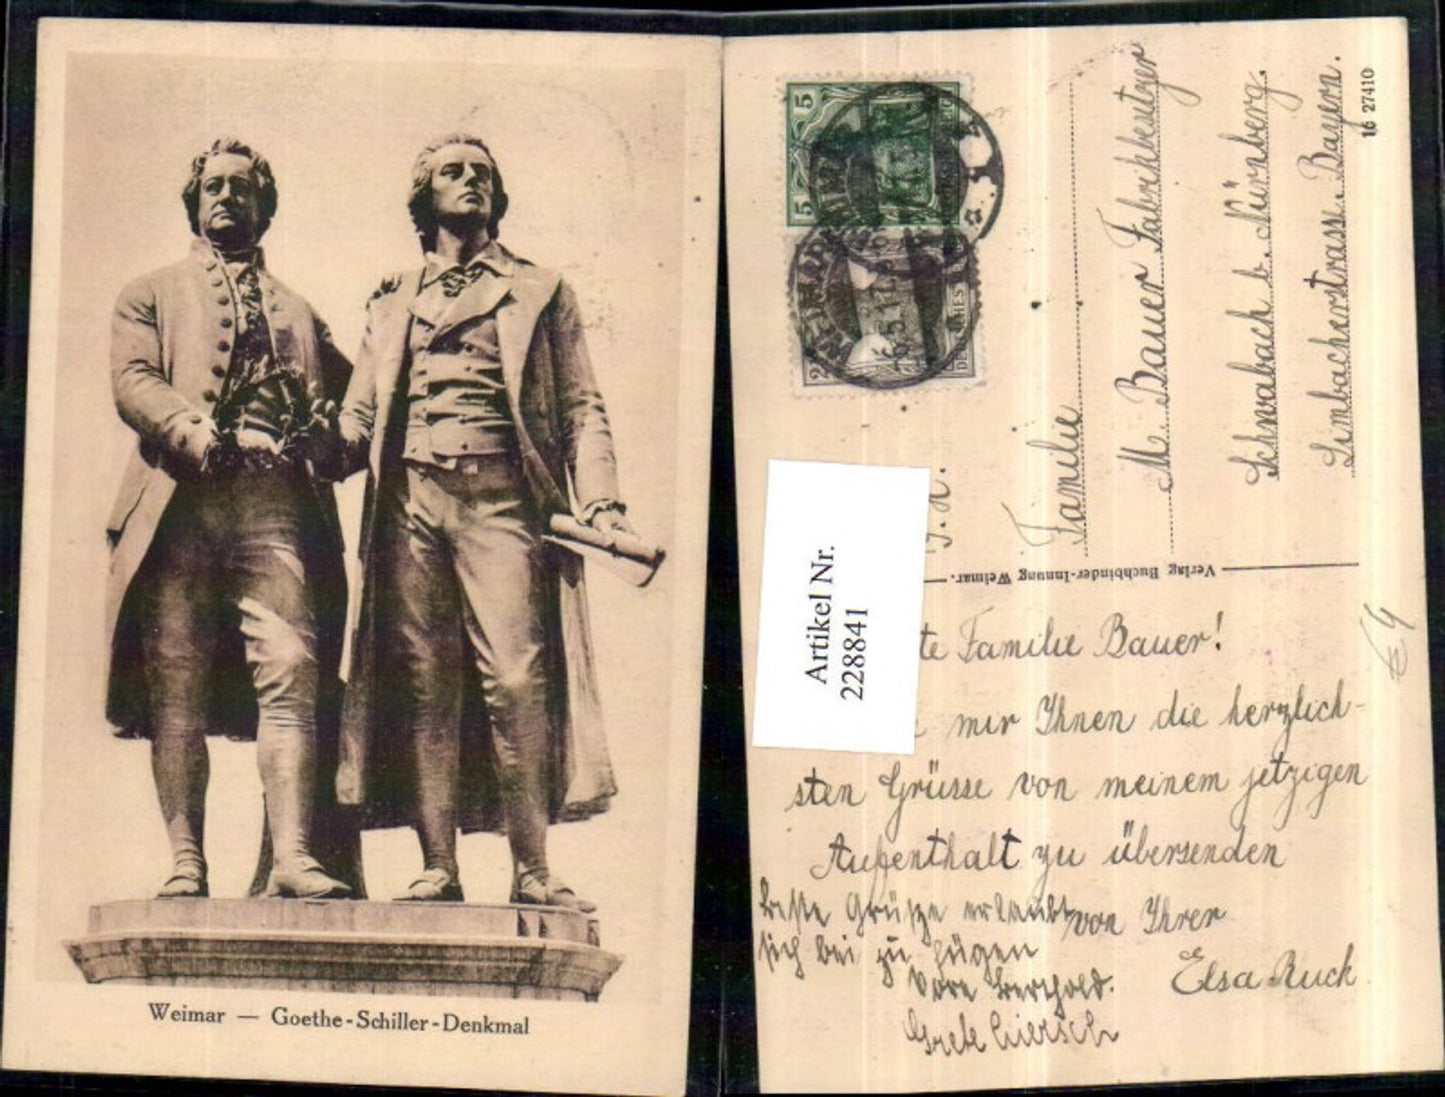 Weimar — Goethe-Schiller-Denkmal
5
5
Artikel Nr.
228841
Familie
M. Bauer Fabrikbesitzer
Schwabach b. Nürnberg.
Limbacherstrasse. Bayern.
16 27410
Verlag Buchbinder-Innung Weimar.
te Familie Bauer!
mir Ihnen die herzlich-
sten Grüsse von meinem jetzigen
Aufenthalt zu übersenden
von Ihrer
Elsa Ruch
Beste Grüße erlaubt
sich bei zu fügen
Grete
€ 4